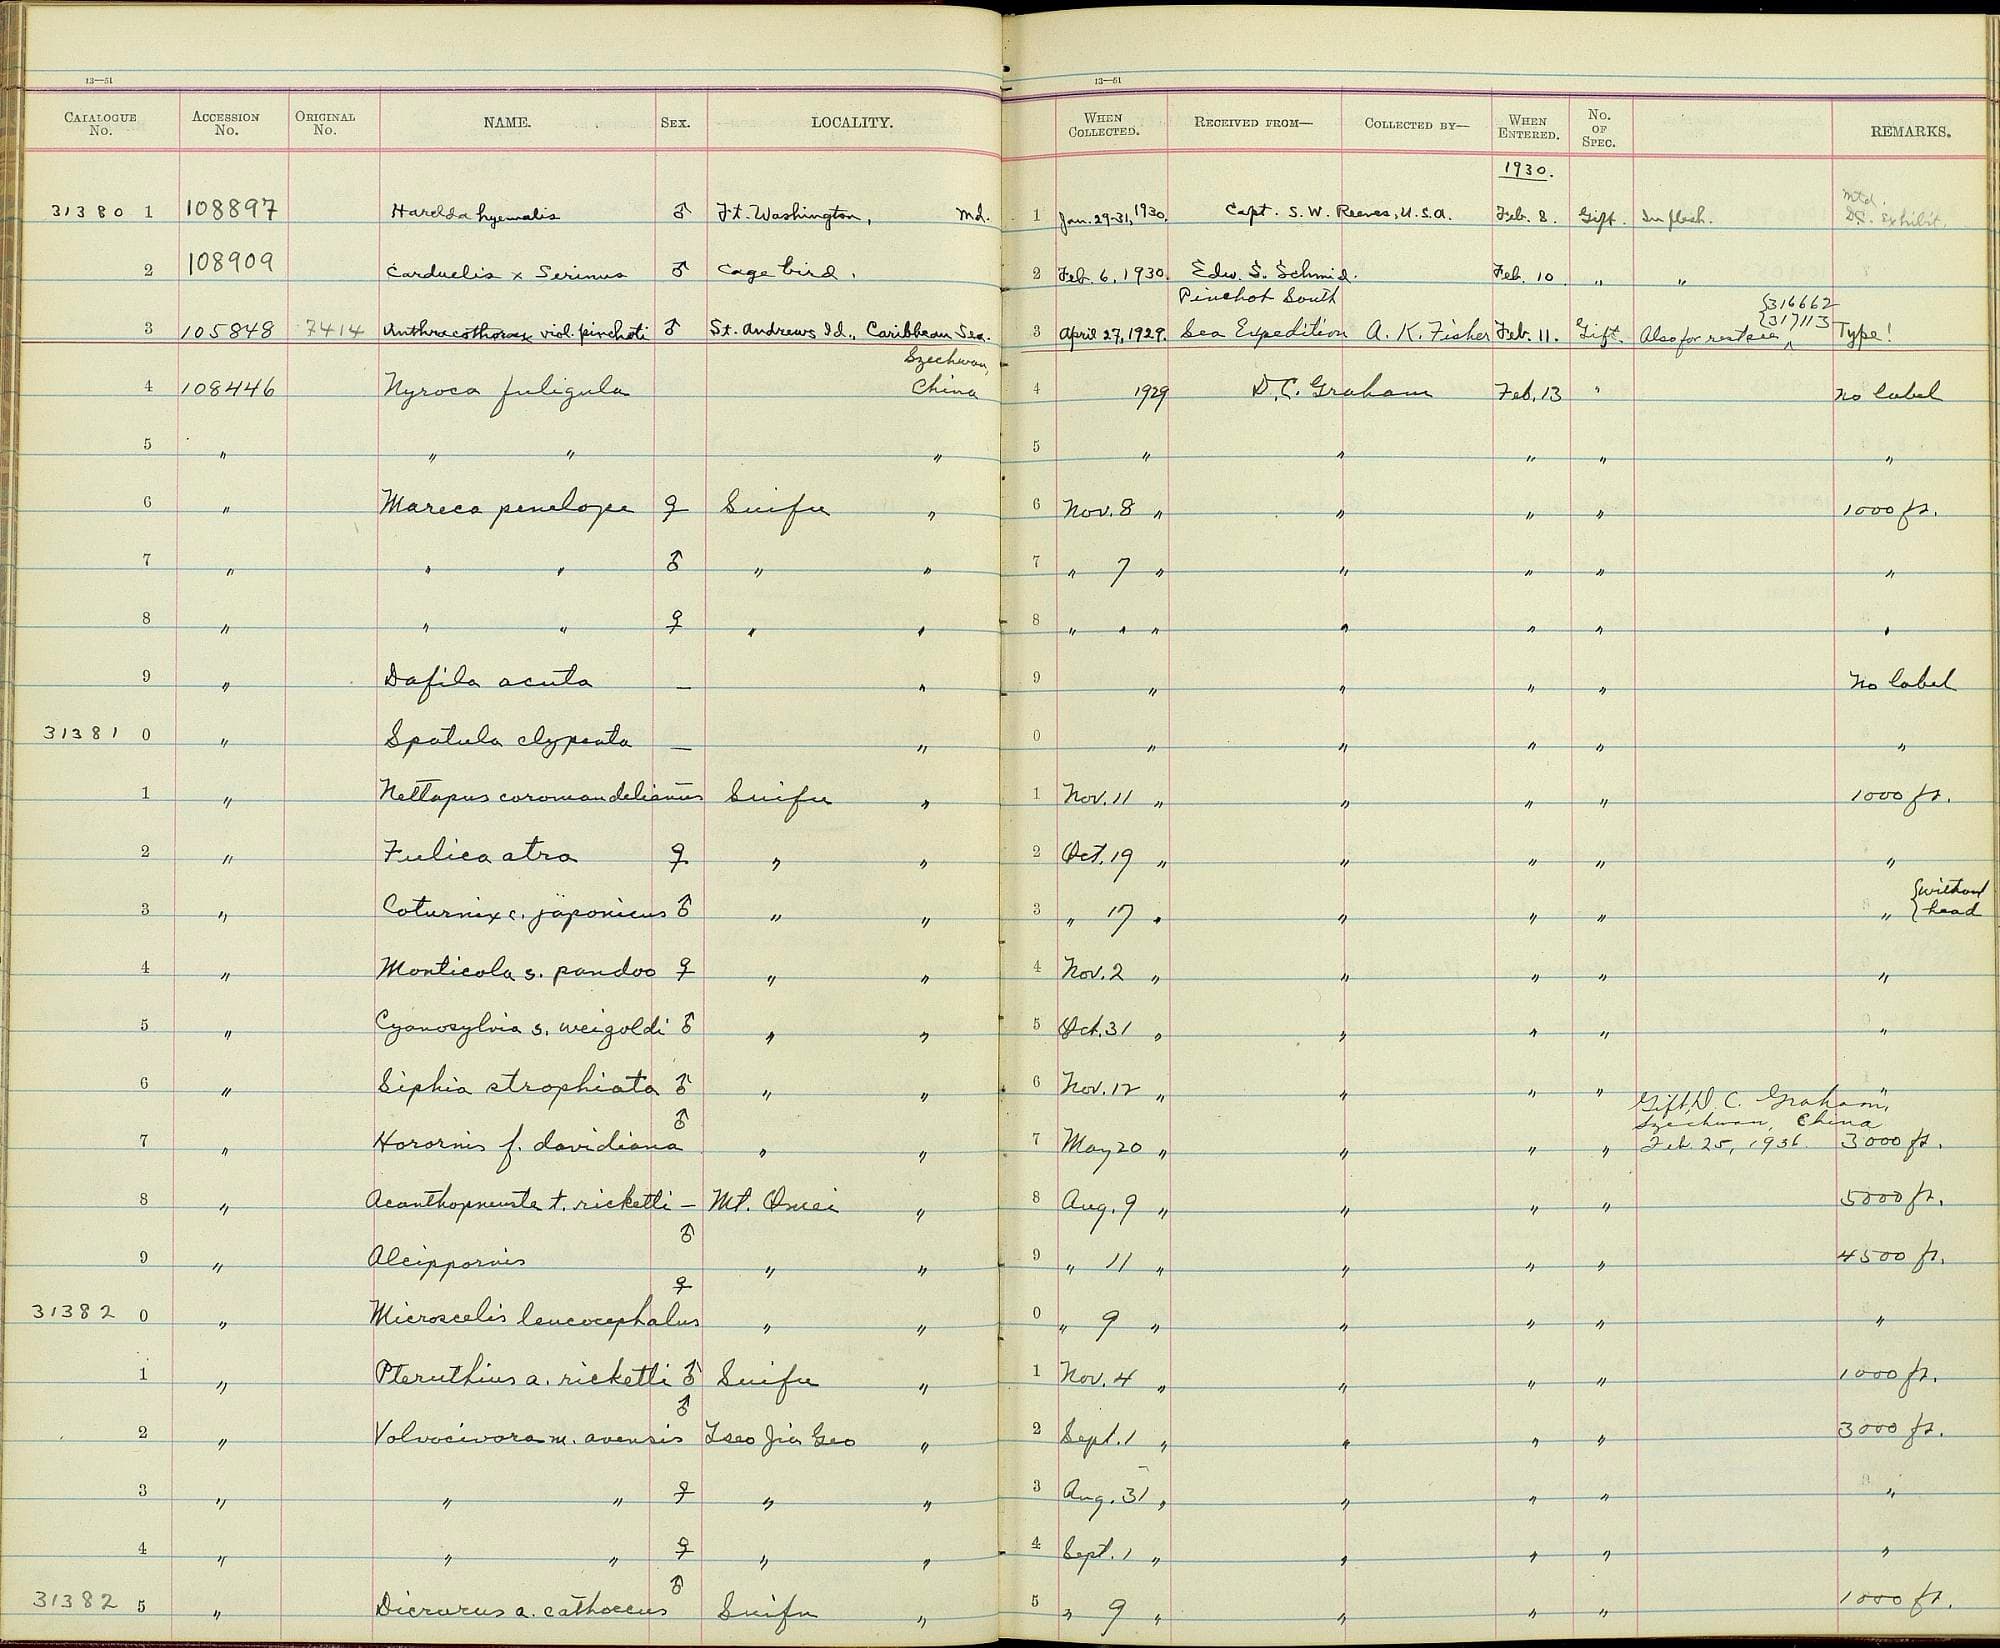 13—51
13—51
CATALOGUE No. ACCESSION No. ORIGINAL No. NAME. SEX. LOCALITY. WHEN COLLECTED. RECEIVED FROM— COLLECTED BY— WHEN ENTERED. No. OF SPEC. REMARKS.
1930.
31380 1 108897 Harelda hyemalis ♂ Ft. Washington, Md. 1 Jan. 29-31, 1930. Capt. S. W. Reeves, U.S.A. Feb. 8. Gift. In flesh. Mtd. D.C. Exhibit.
2 108909 Carduelis x Serinus ♂ Cage bird. 2 Feb. 6, 1930. Edw. S. Schmid. Feb. 10 " "
3 105848 7414 Anthracothorax viol. pinchoti ♂ St. Andrews Id., Caribbean Sea. 3 April 27, 1929. Pinchot South Sea Expedition A. K. Fisher Feb. 11. Gift. Also for {316662 {317113 Type!
4 108446 Nyroca fuligula Szechwan, China 4 1929 D. C. Graham Feb. 13 " no label
5 " " " " 5 " " " " "
6 " Mareca penelope ♀ Suifu " 6 Nov. 8 " " " " 1000 ft.
7 " " " ♂ " " 7 " 7 " " " " "
8 " " " ♀ " " 8 " " " " " " "
9 " Dafila acuta — " 9 " " " " No label
31381 0 " Spatula clypeata — " 0 " " " " "
1 " Nettapus coromandelianus — Suifu " 1 Nov. 11 " " " " 1000 ft.
2 " Fulica atra ♀ " " 2 Oct. 19 " " " " "
3 " Coturnix c. japonicus ♂ " " 3 " 17 " " " " " {without head
4 " Monticola s. pandoo ♀ " " 4 Nov. 2 " " " " "
5 " Cyanosylvia s. weigoldi ♂ " " 5 Oct. 31 " " " " "
6 " Siphia strophiata ♂ " " 6 Nov. 12 " " " " "
7 " Horornis f. davidiana ♂ " " 7 May 20 " " " " Gift, D. C. Graham, Szechwan, China Feb. 25, 1936. 3000 ft.
8 " Acanthopneuste t. ricketti — Mt. Omei " 8 Aug. 9 " " " " 5000 ft.
9 " Alcippornis ♂ " " 9 " 11 " " " " 4500 ft.
31382 0 " Microscelis leucocephalus ♀ " " 0 " 9 " " " " "
1 " Pteruthius a. ricketti ♂ Suifu " 1 Nov. 4 " " " " 1000 ft.
2 " Volvocivora m. avensis ♂ Tseo Jia Geo " 2 Sept. 1 " " " " 3000 ft.
3 " " " ♀ " " 3 Aug. 31 " " " " "
4 " " " ♀ " " 4 Sept. 1 " " " " "
31382 5 " Dicrurus a. cathoecus ♂ Suifu " 5 " 9 " " " " 1000 ft.